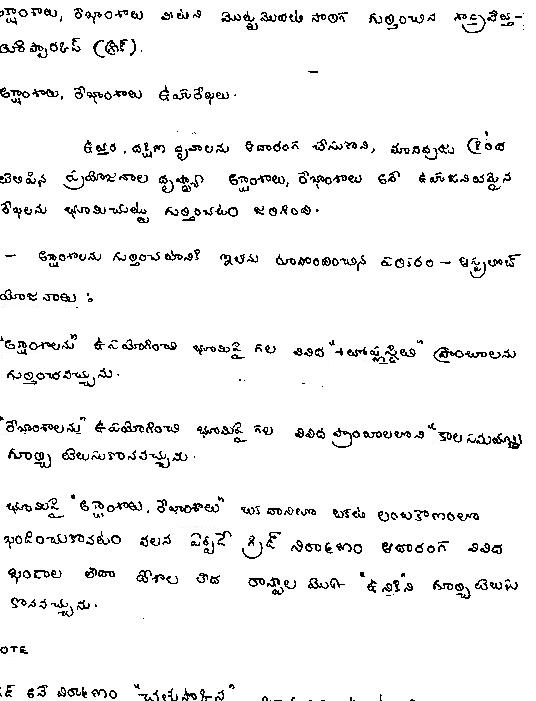 అక్షాంశాలు, రేఖాంశాలు వీటిని మొట్టమొదట సారిగా గుర్తించిన శాస్త్రవేత్త -
హిప్పార్కస్ (గ్రీక్).
అక్షాంశాలు, రేఖాంశాలు ఊహారేఖలు.
ఉత్తర, దక్షిణ ధృవాలను ఆధారంగ చేసుకొని, మానవుడు క్రింద
తెలిపిన ప్రయోజనాల దృష్ట్యా అక్షాంశాలు, రేఖాంశాలు అనే ఊహాజనితమైన
రేఖలను భూమిచుట్టు గుర్తించటం జరిగింది.
- అక్షాంశాలను గుర్తించటానికి ఇతను రూపొందించిన పరికరం - ఆస్ట్రలాబ్
యోజనాలు :
"అక్షాంశాలను" ఉపయోగించి భూమిపై గల వివిధ "శీతోష్ణస్థితి" ప్రాంతాలను
గుర్తించవచ్చును.
"రేఖాంశాలను" ఉపయోగించి భూమిపై గల వివిధ ప్రాంతాలలోని "కాల సమయాన్ని"
గూర్చి తెలుసుకొనవచ్చును.
భూమిపై "అక్షాంశాలు, రేఖాంశాలు" ఒకదానితో ఒకటి లంబకోణంలో
ఖండించుకొనటం వలన ఏర్పడే గ్రిడ్ నిర్మాణం ఆధారంగ వివిధ
ఖండాల లేదా దేశాల లేదా రాష్ట్రాల యొక్క "ఉనికి"ని గూర్చి తెలుసు
కొనవచ్చును.
OTE
అనే నిర్మాణం